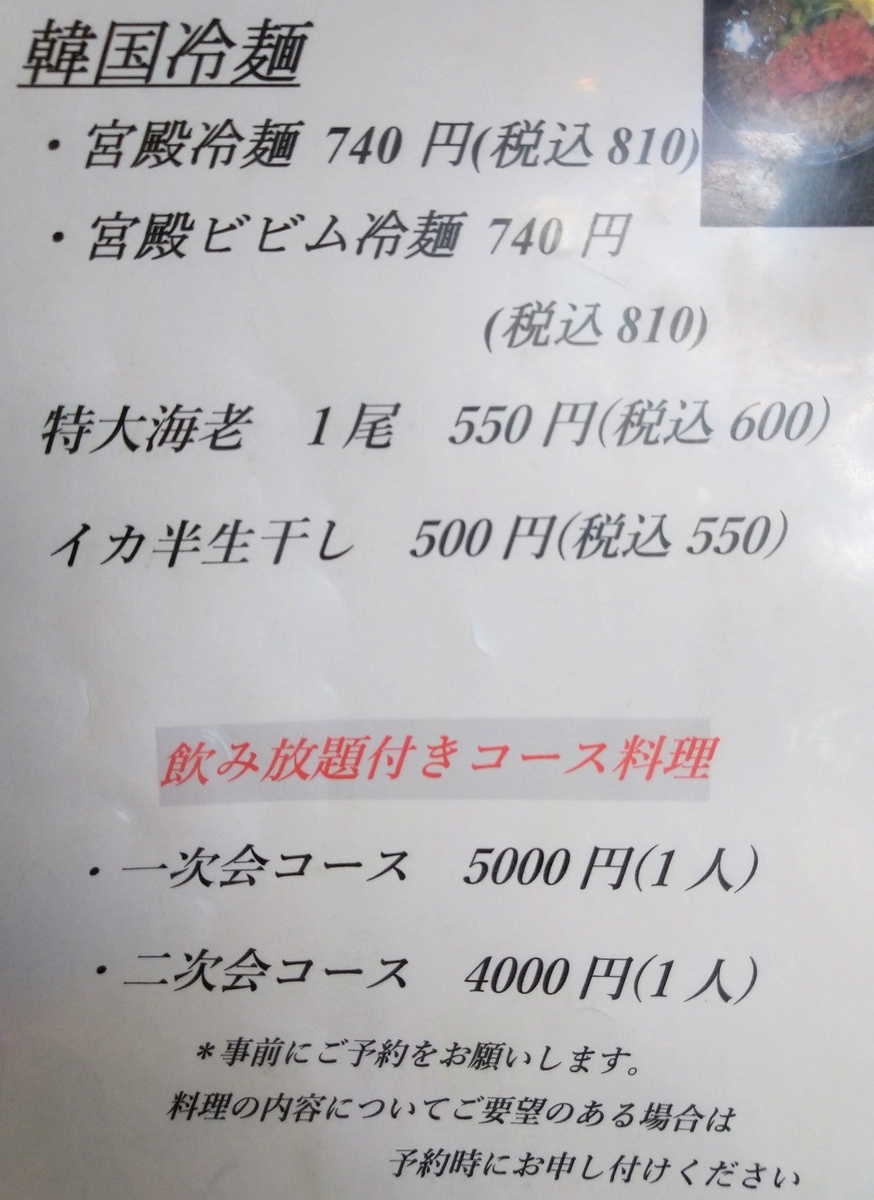 韓国冷麺
・宮殿冷麺 740 円(税込 810)
・宮殿ビビム冷麺 740 円
(税込 810)
特大海老 1尾 550 円(税込 600)
イカ半生干し 500 円(税込 550)
飲み放題付きコース料理
・一次会コース 5000 円(1 人)
・二次会コース 4000 円(1 人)
*事前にご予約をお願いします。
料理の内容についてご要望のある場合は
予約時にお申し付けください